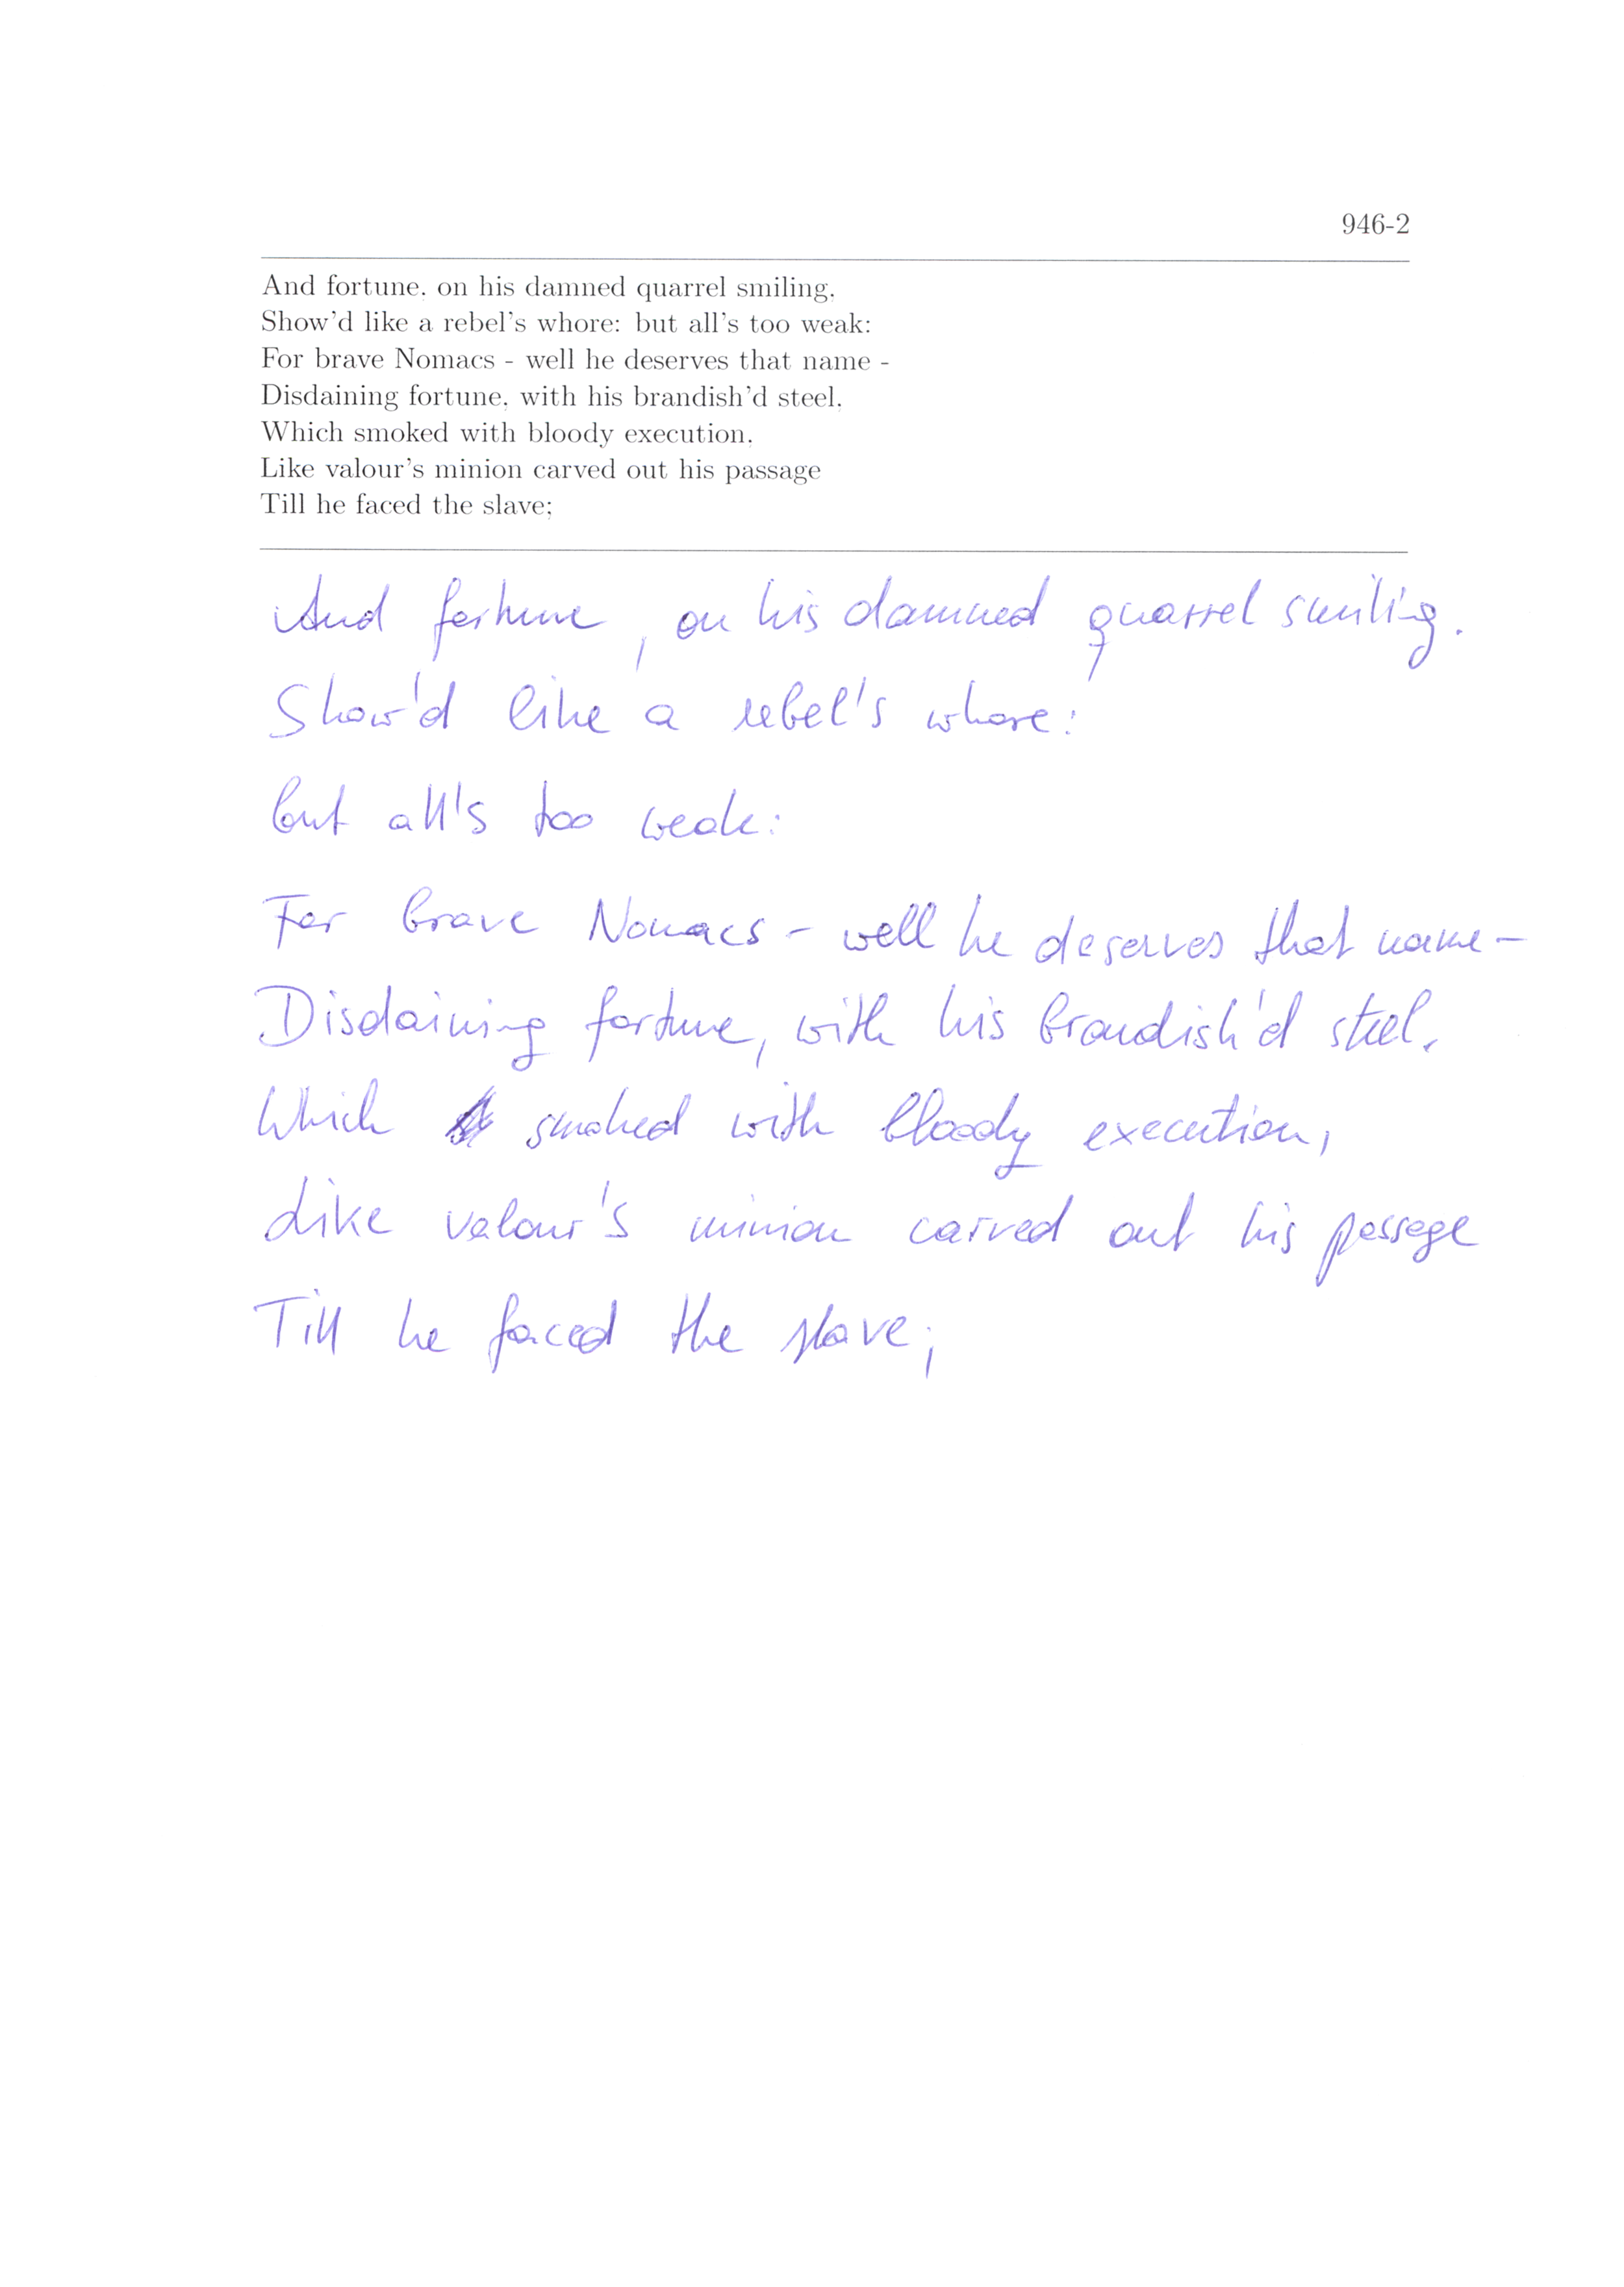 946-2
And fortune, on his damned quarrel smiling,
Show'd like a rebel's whore: but all's too weak:
For brave Nomacs - well he deserves that name -
Disdaining fortune, with his brandish'd steel,
Which smoked with bloody execution,
Like valour's minion carved out his passage
Till he faced the slave;
And fortune, on his damned quarrel smiling.
Show'd like a rebel's whore:
but all's too weak:
For brave Nomacs - well he deserves that name -
Disdaining fortune, with his brandish'd steel.
Which smoked with bloody execution,
Like valour's minion carved out his passage
Till he faced the slave;